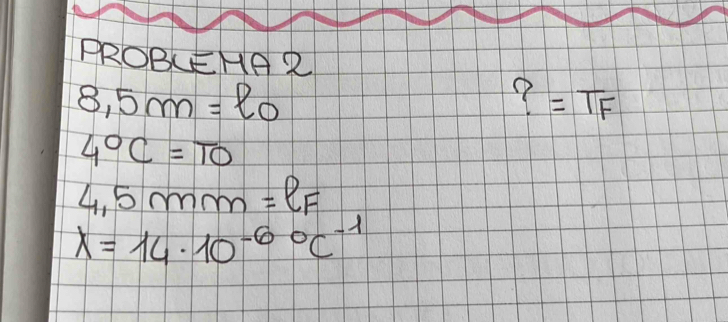 PROBLEMA 2
8,5 m = l0
? = TF
4°C = T0
4,5 mm = lF
λ = 14 · 10⁻⁶ °C⁻¹